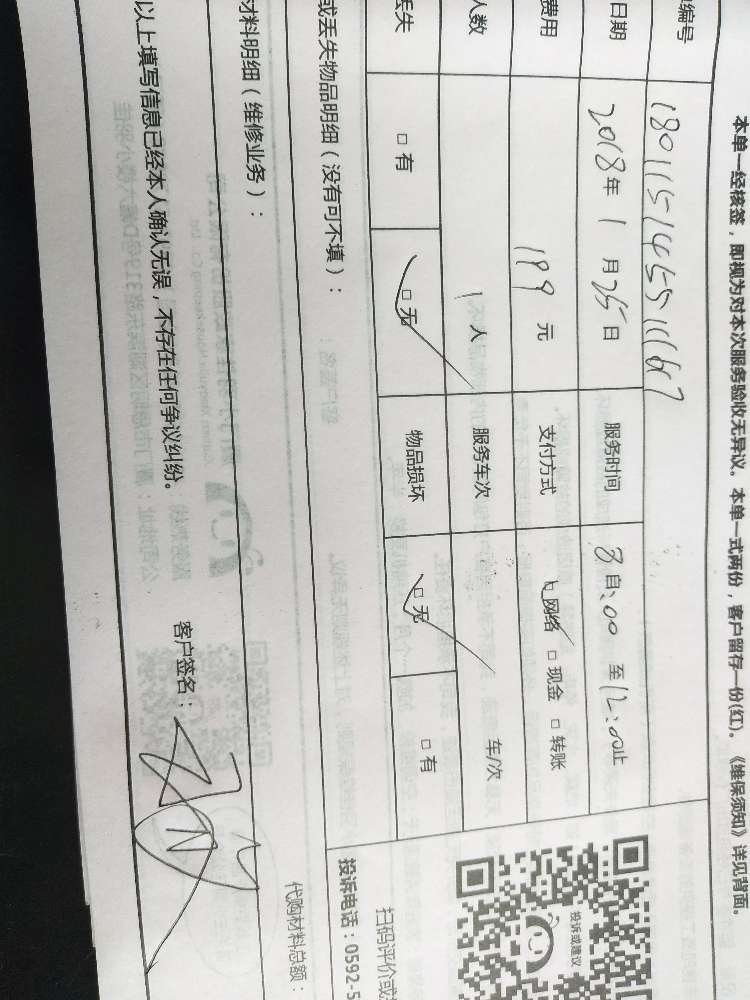 本单一经核签，即视为对本次服务验收无异议。本单一式两份，客户留存一份(红)。《维保须知》详见背面。
编号 180115145511167
日期 2018年1月25日 服务时间 8自:00 至12:00止
费用 199元 支付方式 □网络 □现金 □转账
人数 1人 服务车次 车/次
丢失 □有 □无 物品损坏 □无 □有
或丢失物品明细（没有可不填）：
材料明细（维修业务）：
代购材料总额：
以上填写信息已经本人确认无误，不存在任何争议纠纷。
客户签名：
投诉或建议
扫码评价或
投诉电话：0592-5